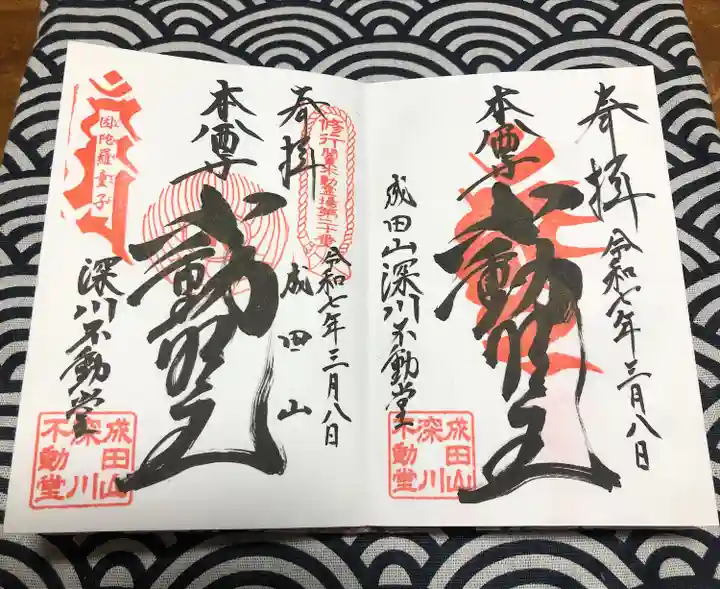 奉拝
令和七年三月八日
本尊
不動明王
成田山深川不動堂
成田山
深川
不動堂
奉拝
修行
関東不動霊場第二十番
令和七年三月八日
成田山
本尊
不動明王
深川不動堂
因陀羅童子
成田山
深川
不動堂